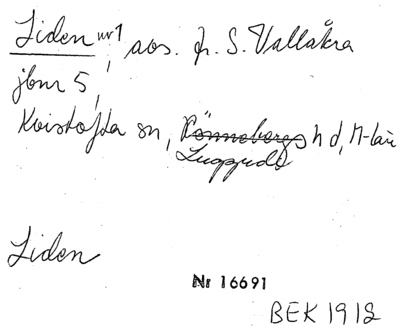 Liden nr 1, avs. fr. S. Vallåkra
jbnr 5,
Kvistofta sn, Rönnebergs hd, M-län
Luggude
Liden
Nr 16691
BEK 1918